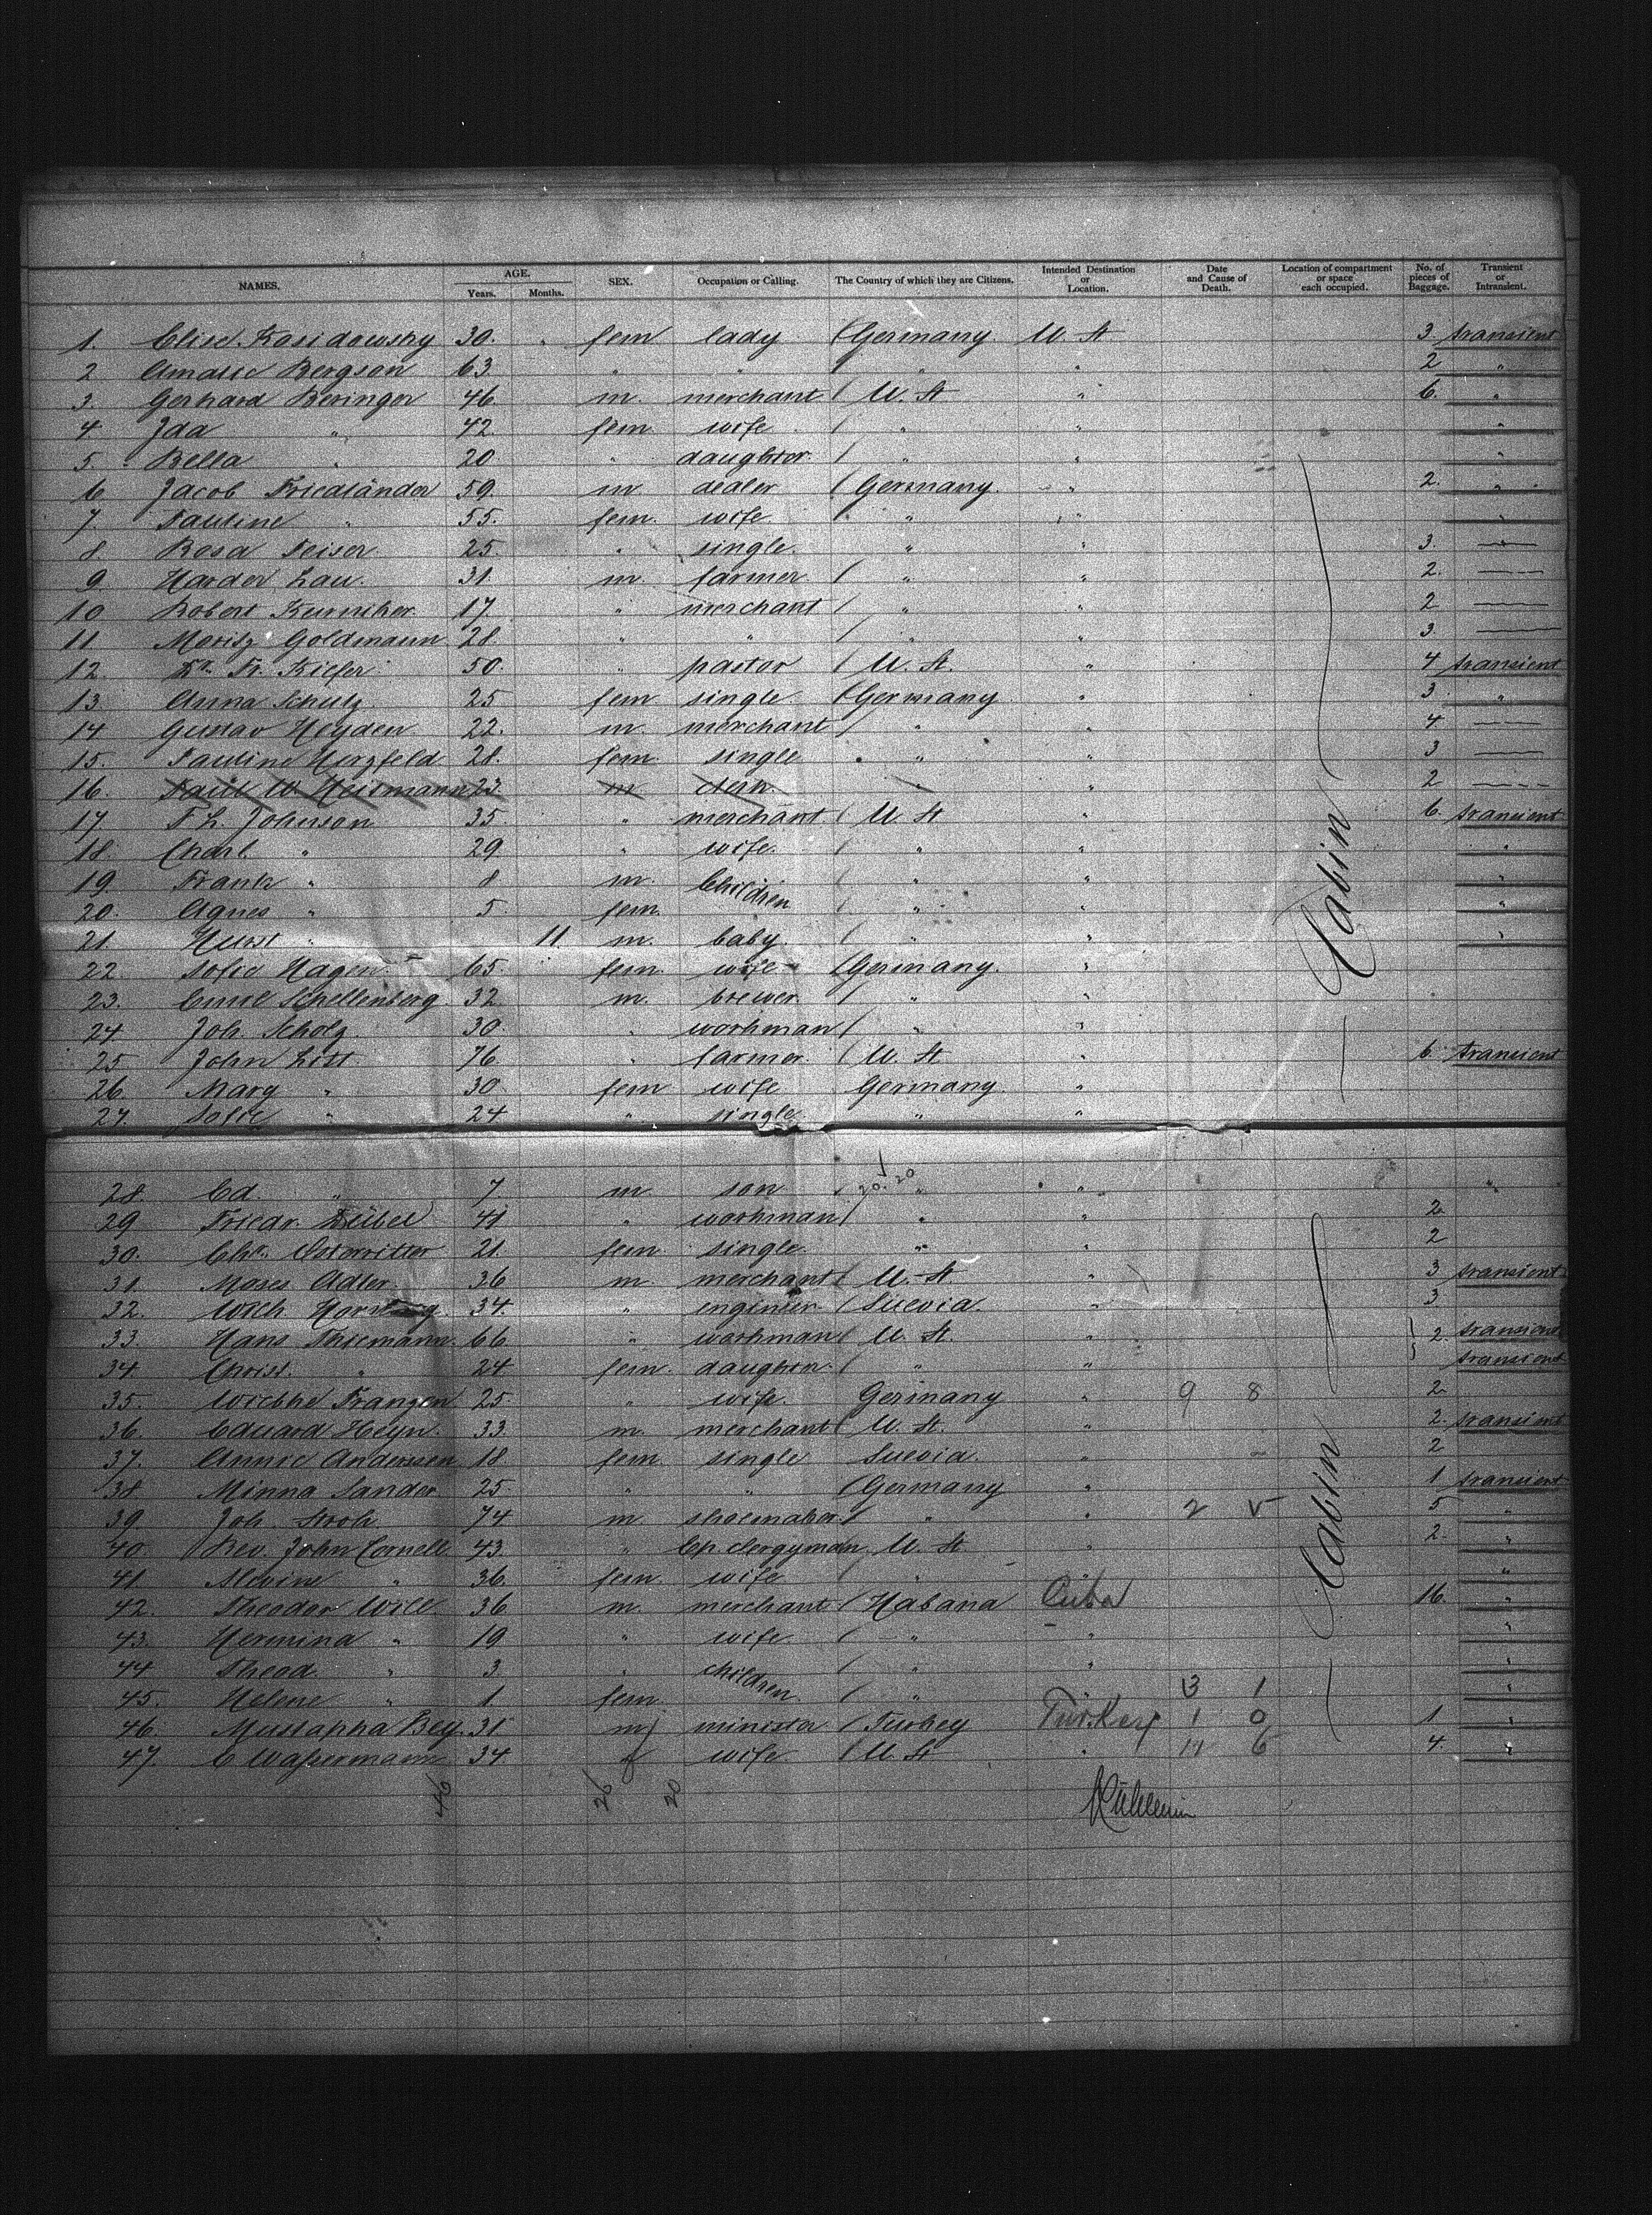 NAMES. AGE. Years. Months. SEX. Occupation or Calling. The Country of which they are Citizens. Intended Destination or Location. Date and Cause of Death. Location of compartment or space each occupied. No. of pieces of Baggage. Transient or Intransient.
1. Elise Kosidowsky 30. fem lady Germany U. St 3 transient
2 Amalie Bergson 63 " " " " 2 "
3. Gerhard Beringer 46. m. merchant U. St " 6. "
4. Ida " 42. fem. wife " " "
5. Bella " 20 " daughter " " "
6 Jacob Friedländer 59. m. dealer Germany. " 2. "
7 Pauline " 55. fem. wife " " "
8. Rosa 25. " single. " " 3.
9. Harder Lau. 31. m. farmer " " 2.
10 Robert 17. " merchant " " 2
11 Moritz Goldmann 28. " " " " 3.
12. Dr. Fr. Kiefer 50. " pastor U. St. " 4 transient
13 Anna Schulz 25 fem single Germany " 3. "
14 Gustav Heyden 22. m. merchant " " 4
15. Pauline Herzfeld 28. fem. single " " 3
16. W. 23. m clerk. " " 2
17. Johnson 35. " merchant U St " 6. transient
18. Charl. " 29 " wife. " " "
19. Frank " 8 m. Children " " "
20. Agnes " 5. fem. " " "
21. " 11. m. baby. " " "
22 Sofie Hagen 65. fem. wife Germany. "
23. Emil Schellenberg 32. m. brewer. " "
24. Joh. Scholz 30. " workman " "
25 John Litt 76. " farmer. U. St " 6. transient
26. Marg " 30. fem wife Germany. "
27. Sofie " 24 " single " "
Cabin
28. Ed. " 7 m. son " " "
29 Friedr. 41 " workman " " 2
30. 21. fem. single. " " 2
31. Moses Adler. 36 m. merchant U. St " 3 transient
32. 34. " engineer Suevia. " 3
33. Hans Thiemann. 66 " workman U. St. " 2. transient
34. Christ. " 24 fem. daughter. " " transient
35. Wiebke Franzen 25. " wife. Germany " 9 8 2
36. Eduard Heyn. 33. m. merchant U. St. " 2. transient
37. Annie Anderssen 18. fem. single Suevia. " 2
38 Minna Sander 25 " " Germany " 1 transient
39. Joh. Stroh 74 m. shoemaker. " " 2 5 "
40 Rev. John Cornell 43. " Ep. clergyman U. St " 2. "
41. " 36. fem. wife " "
42. Theodor Will 36 m. merchant Habana Cuba 16. "
43. Hermina " 19 " wife. " " "
44 Theod. " 3. " children " " "
45. Helene " 1. fem. " 3 1 "
46. Mustapha Bey. 31 m minister Turkey Turkey 1 0 1 "
47. C Wassermann 34 f wife U. St " 11 6 4. "
Cabin
46 26 20